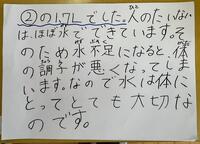 ②のトクLでした。人のたいない
は、ほぼ水でできています。そ
のため水不足になると、体
の調子が悪くなってしま
います。なので水は体に
とってとても大切な
のです。